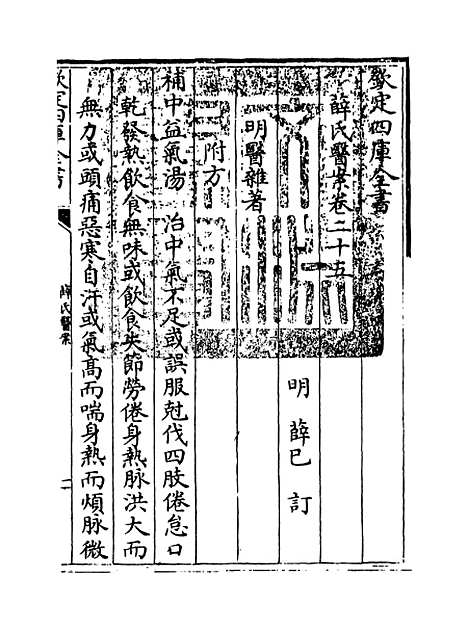 欽定四庫全書
薛氏醫案卷二十五
明 薛已 訂
明醫雜著
附方
補中益氣湯 治中氣不足或誤服尅伐四肢倦怠口
乾發熱飲食無味或飲食失節勞倦身熱脉洪大而
無力或頭痛惡寒自汗或氣髙而喘身熱而煩脉微
欽定四庫全書
薛氏醫案
二